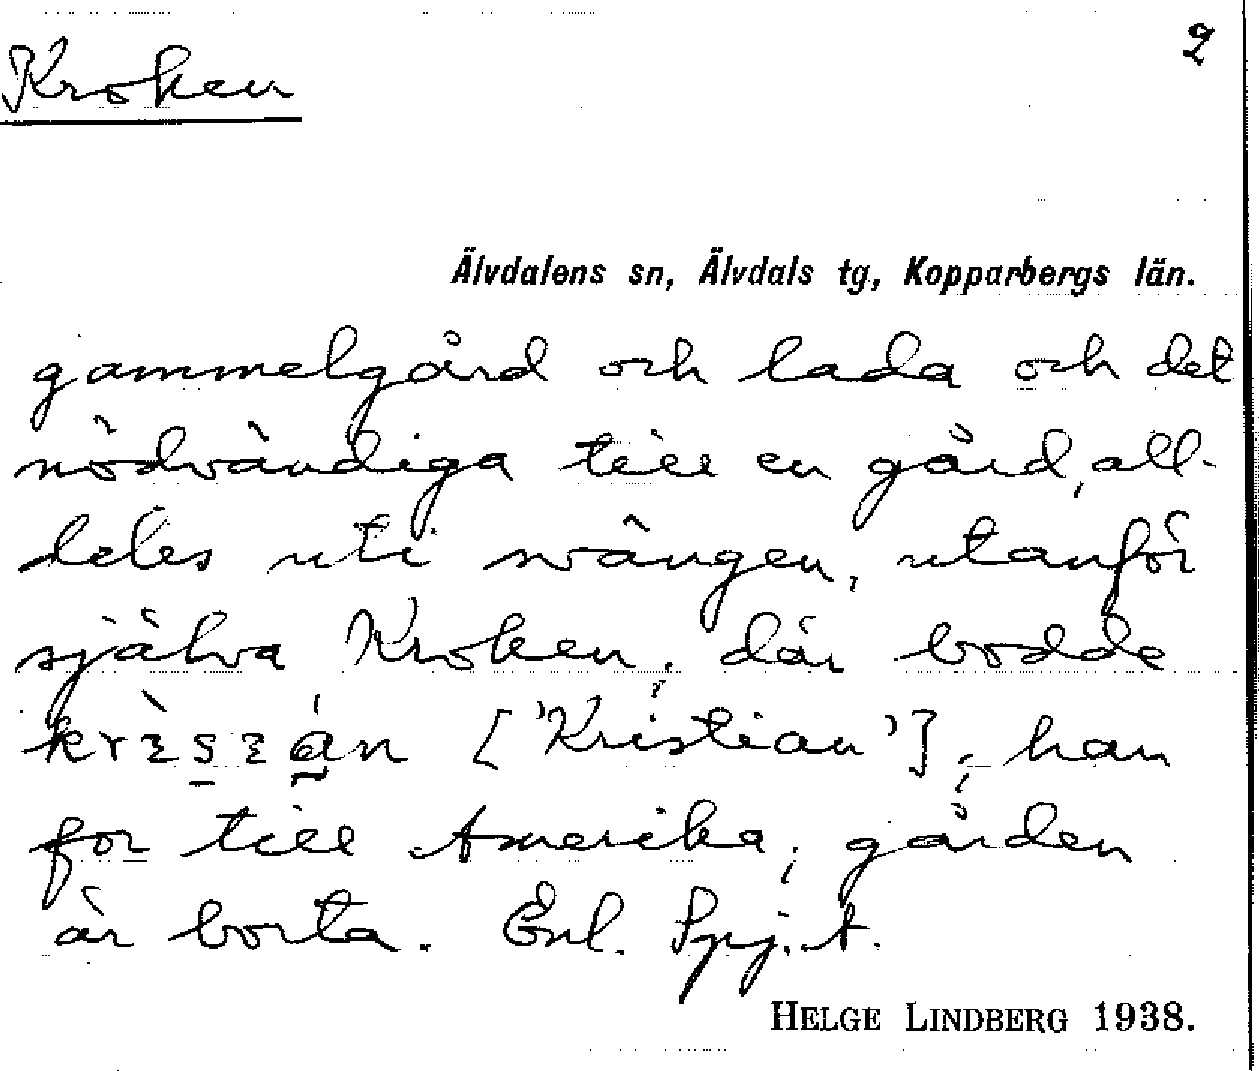 Kroken
2
Älvdalens sn, Älvdals tg, Kopparbergs län.
gammelgård och lada och det
nödvändiga till en gård, all-
deles uti svängen, utanför
själva Kroken, där bodde
['Kristian'], han
for till Amerika; gården
är borta. Enl. Ppj. A.
HELGE LINDBERG 1938.